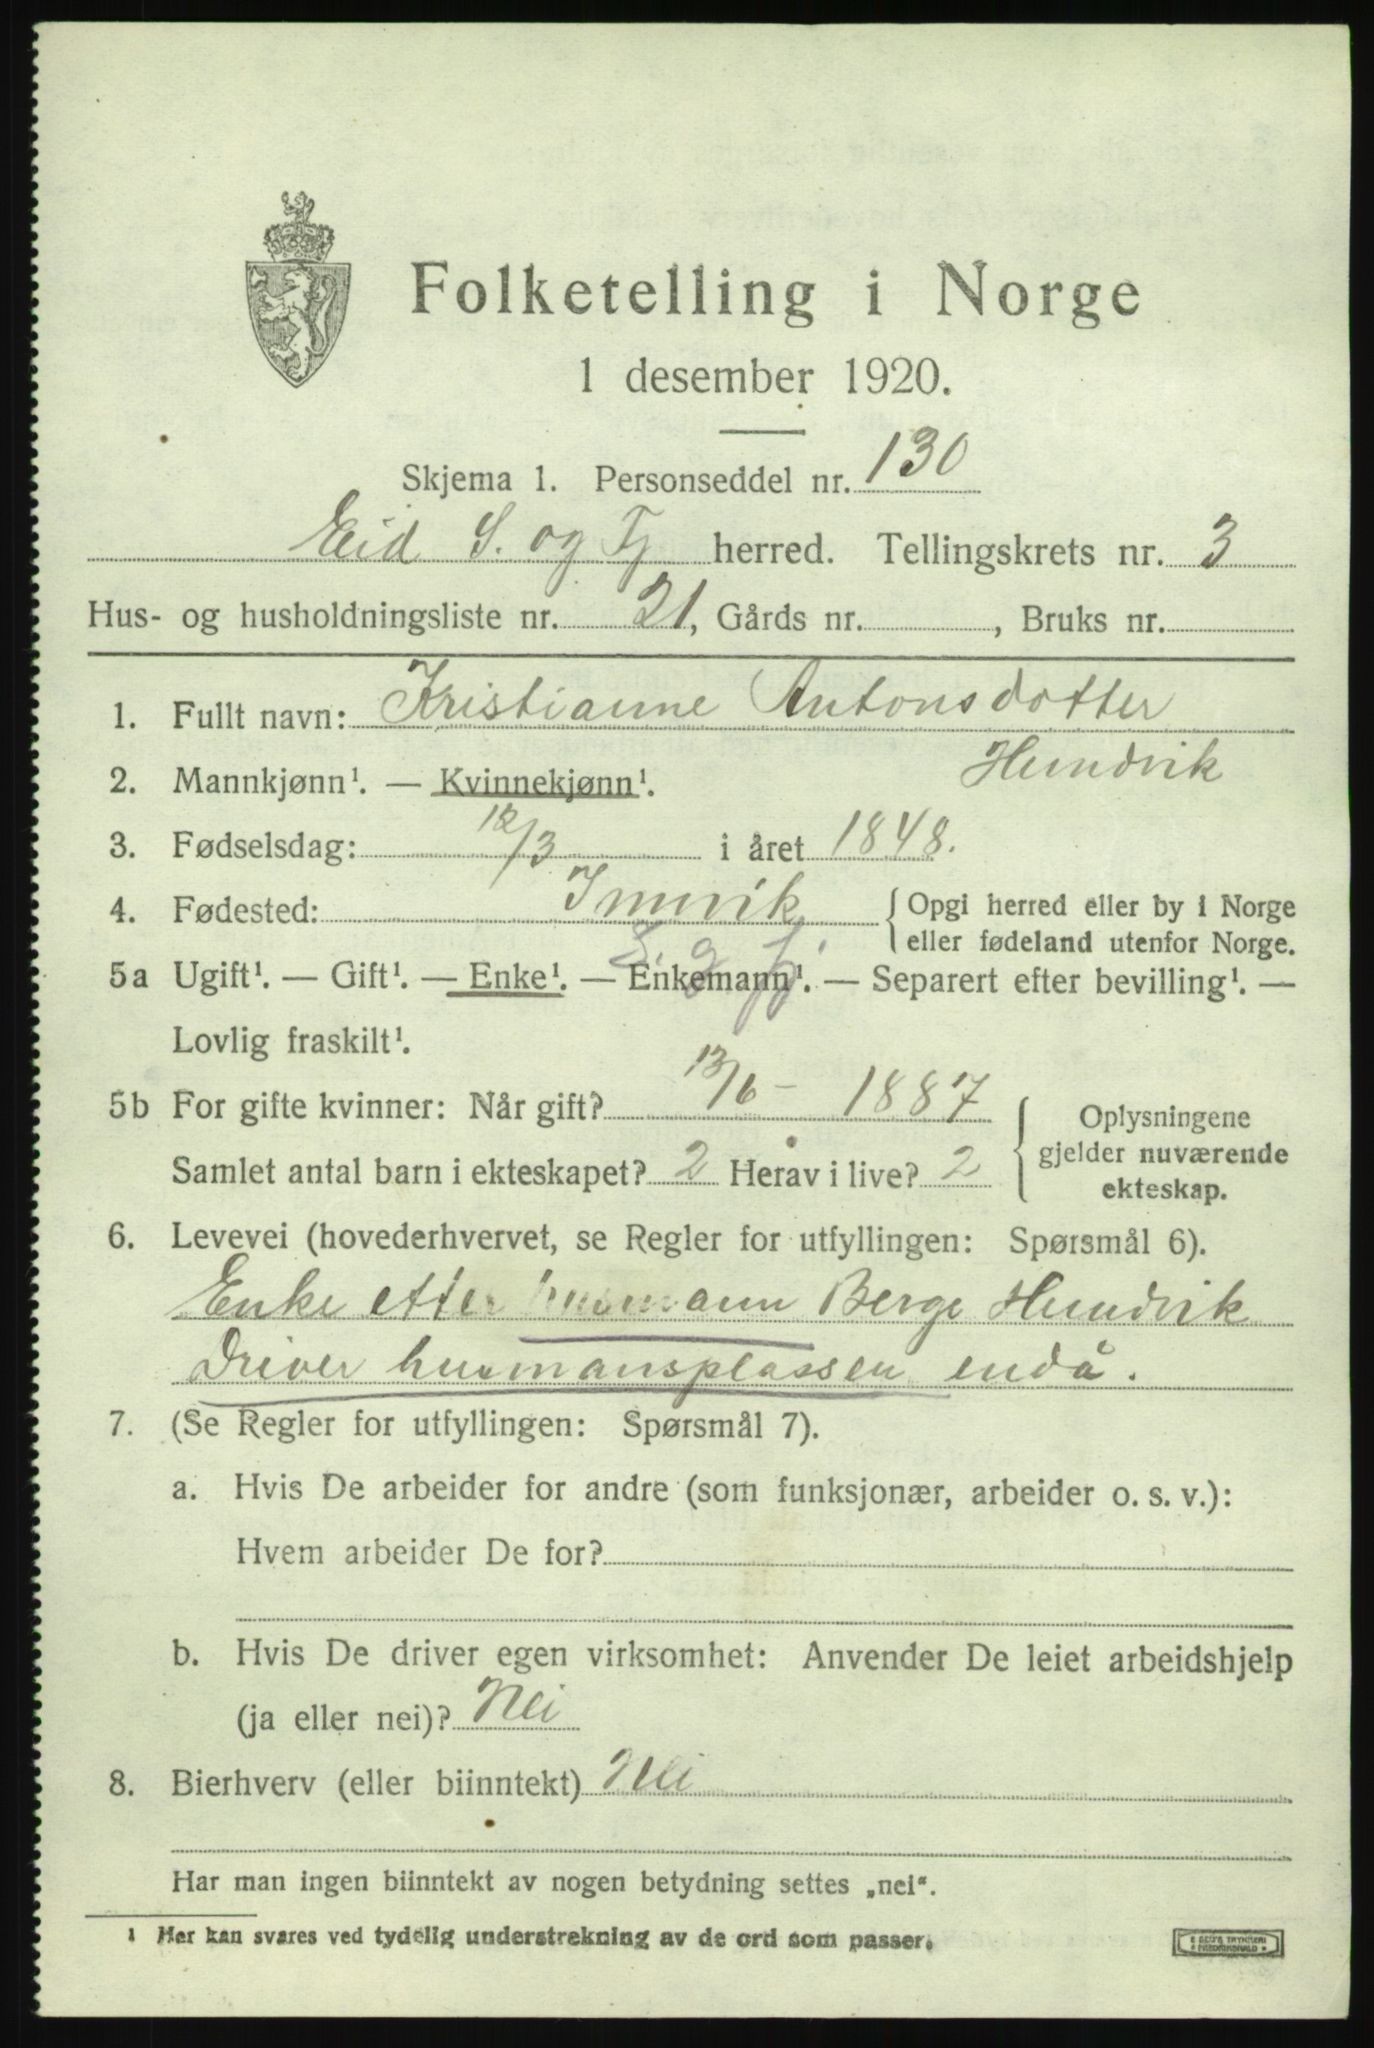 Folketelling i Norge
1 desember 1920.
Skjema 1. Personseddel nr. 130
Eid S. og Fj herred. Tellingskrets nr. 3
Hus- og husholdningsliste nr. 21, Gårds nr. , Bruks nr.
1. Fullt navn: Kristianne Antonsdotter
Hundvik
2. Mannkjønn¹. — Kvinnekjønn¹.
3. Fødselsdag: 12/3 i året 1848.
4. Fødested: Innvik { Opgi herred eller by i Norge
eller fødeland utenfor Norge.
S. g fj.
5a Ugift¹. — Gift¹. — Enke¹. — Enkemann¹. — Separert efter bevilling¹. —
Lovlig fraskilt¹.
5b For gifte kvinner: Når gift? 13/6 - 1887
Samlet antal barn i ekteskapet? 2 Herav i live? 2
{ Oplysningene
gjelder nuværende
ekteskap.
6. Levevei (hovederhvervet, se Regler for utfyllingen: Spørsmål 6).
Enke etter husmann Berge Hundvik
Driver husmansplassen endå.
7. (Se Regler for utfyllingen: Spørsmål 7).
a. Hvis De arbeider for andre (som funksjonær, arbeider o. s. v.):
Hvem arbeider De for?
b. Hvis De driver egen virksomhet: Anvender De leiet arbeidshjelp
(ja eller nei)? Nei
8. Bierhverv (eller biinntekt) Nei
Har man ingen biinntekt av nogen betydning settes „nei“.
¹ Her kan svares ved tydelig understrekning av de ord som passer.